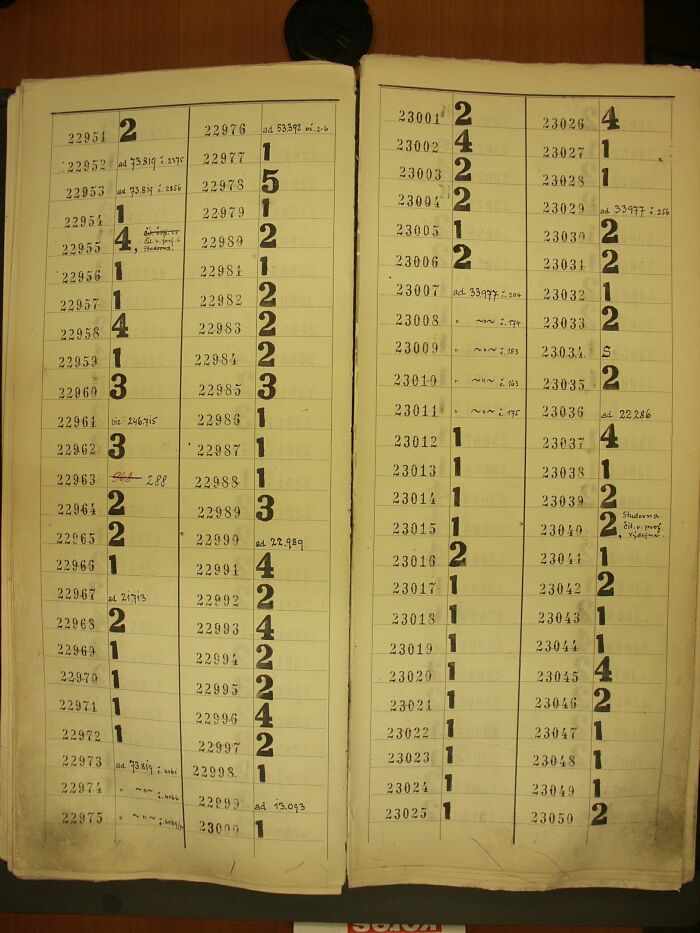 22951 2
22952 ad 73.819 č. 2375
22953 ad 73.819 č. 2856
22954 1
22955 4,
čit. v. prof. b
studovna
22956 1
22957 1
22958 4
22959 1
22960 3
22961 viz 246.715
22962 3
22963 968 288
22964 2
22965 2
22966 1
22967 ad 21713
22968 2
22969 1
22970 1
22971 1
22972 1
22973 ad 73.819
22974 " ~"~
22975 " ~"~
22976 ad 53.392 vš. 2-6
22977 1
22978 5
22979 1
22980 2
22981 1
22982 2
22983 2
22984 2
22985 3
22986 1
22987 1
22988 1
22989 3
22990 ad 22.989
22991 4
22992 2
22993 4
22994 2
22995 2
22996 4
22997 2
22998 1
22999 ad 13.093
23000 1
23001 2
23002 4
23003 2
23004 2
23005 1
23006 2
23007 ad 33977 č. 204
23008 " ~"~ č. 174
23009 " ~"~ č. 183
23010 " ~"~ č. 163
23011 " ~"~ č. 175
23012 1
23013 1
23014 1
23015 1
23016 2
23017 1
23018 1
23019 1
23020 1
23021 1
23022 1
23023 1
23024 1
23025 1
23026 4
23027 1
23028 1
23029 ad 33977 č. 256
23030 2
23031 2
23032 1
23033 2
23034 S
23035 2
23036 ad 22286
23037 4
23038 1
23039 2
23040 2, Studovna
čit. v. prof.
Výdejna
23041 1
23042 2
23043 1
23044 1
23045 4
23046 2
23047 1
23048 1
23049 1
23050 2